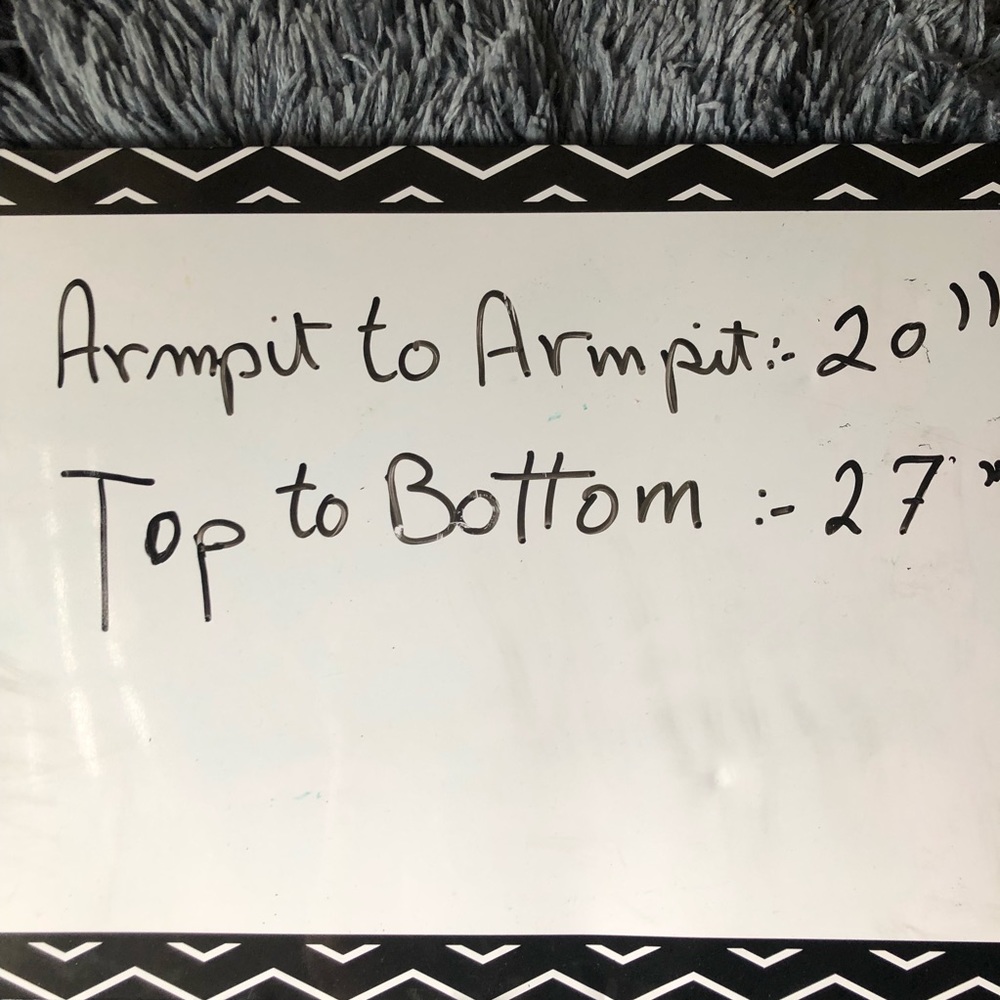 Armpit to Armpit:- 20"
Top to Bottom :- 27"